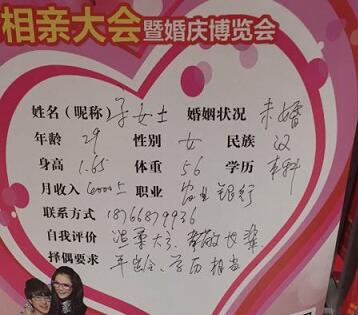 相亲大会暨婚庆博览会
姓名（昵称）子女士 婚姻状况 未婚
年龄 29 性别 女 民族 汉
身高 1.65 体重 56 学历 本科
月收入 6000上 职业 农业银行
联系方式 18766879936
自我评价 温柔大方、孝敬长辈
择偶要求 年龄、学历相当